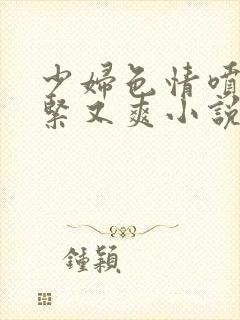 少婦色情噴
緊又爽小說
鍾穎